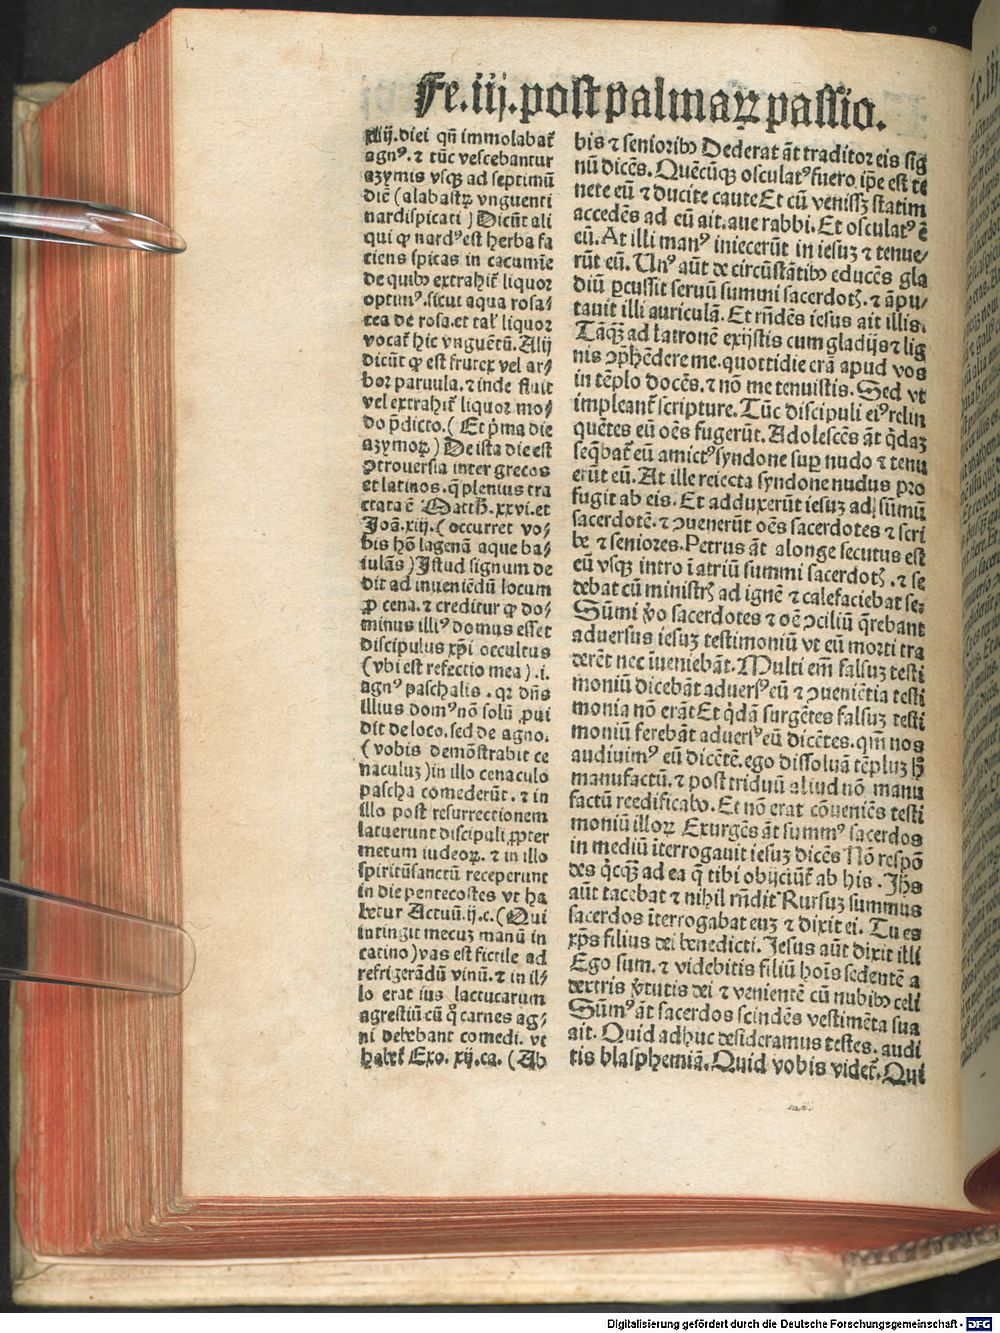 Fe.iij.post palmaꝝ passio.
xiiij.diei qñ immolabat᷑
agnꝰ.⁊ tūc vescebantur
azymis vsqꝫ ad septimū
diē (alabastꝝ vnguenti
nardispicati) Dicūt ali
qui ꝙ nardꝰ est herba fa
ciens spicas in cacumīe
de quibꝰ extrahit᷑ liquor
optimꝰ.sicut aqua rosa⸗
cea de rosa.et tal' liquor
vocat᷑ hic vnguētū.Alij
dicūt ꝙ est frutex vel ar⸗
bor paruula.⁊ inde fluit
vel extrahit᷑ liquor mo⸗
do p̄dicto.(Et p̄ma die
azymoꝝ) De ista die est
ꝯtrouersia inter grecos
et latinos.q̄ plenius tra
ctata ē Matth.xxvi.et
Joā.xiij.(occurret vo⸗
bis hō lagenā aque ba⸗
iulās) Istud signum de
dit ad inueniēdū locum
ꝓ cena.⁊ creditur ꝙ do⸗
minus illiꝰ domus esset
discipulus xp̄i occultus
(vbi est refectio mea).i.
agnꝰ paschalis.qꝛ dn̄s
illius domꝰ nō solū ꝓui
dit de loco.sed de agno.
(vobis demōstrabit ce
naculuꝫ) in illo cenaculo
pascha comederūt.⁊ in
illo post resurrectionem
latuerunt discipuli ꝓpter
metum iudeoꝝ.⁊ in illo
spiritūsanctū receperunt
in die pentecostes vt ha
betur Actuū.ij.c.(Qui
intingit mecuꝫ manū in
catino) vas est fictile ad
refrigerādū vinū.⁊ in il⸗
lo erat ius lactucarum
agrestiū cū q̊ carnes ag⸗
ni debebant comedi. vt
habet᷑ Exo. xij.ca. (Ab
bis ⁊ senioribꝰ Dederat āt traditor eis sig
nū dicēs.Quēcūqꝫ osculatꝰ fuero ip̄e est te
nete eū ⁊ ducite caute Et cū venissꝫ statim
accedēs ad eū ait.aue rabbi.Et osculatꝰ ē
eū.At illi manꝰ iniecerūt in iesuꝫ ⁊ tenue⸗
rūt eū.Unꝰ aūt de circūstātibꝰ educēs gla
diū ꝑcussit seruū summi sacerdotꝭ.⁊ āpu⸗
tauit illi auriculā.Et rn̄dēs iesus ait illis.
Tāqꝫ ad latronē exijstis cum gladijs ⁊ lig
nis ꝯp̄hēdere me.quottidie erā apud vos
in tēplo docēs.⁊ nō me tenuistis.Sed vt
impleant᷑ scripture.Tūc discipuli eiꝰ relin
quētes eū oēs fugerūt.Adolescēs āt q̇daꝫ
seq̄bat᷑ eū amictꝰ syndone suꝑ nudo ⁊ tenu
erūt eū.At ille reiecta syndone nudus pro
fugit ab eis.Et adduxerūt iesuꝫ ad sūmū
sacerdotē.⁊ ꝯuenerūt oēs sacerdotes ⁊ scri
be ⁊ seniores.Petrus āt a longe secutus est
eū vsqꝫ intro ī atriū summi sacerdotꝭ.⁊ se
debat cū ministrꝭ ad ignē ⁊ calefaciebat se.
Sūmi ꝟo sacerdotes ⁊ oē ꝯciliū q̄rebant
aduersus iesuꝫ testimoniū vt eū morti tra
derēt nec īueniebāt.Multi em̄ falsuꝫ testi
moniū dicebāt aduersꝰ eū ⁊ ꝯueniētia testi
monia nō erāt Et q̇dā surgētes falsuꝫ testi
moniū ferebāt aduersꝰ eū dicētes.qm̄ nos
audiuimꝰ eū dicētē.ego dissoluā tēpluꝫ h̄
manufactū.⁊ post triduū aliud nō manu
factū reedificabo.Et nō erat cōueniēs testi
moniū illoꝝ Exurgēs āt summꝰ sacerdos
in mediū īterrogauit iesuꝫ dicēs Nō respō
des q̇cqꝫ ad ea q̄ tibi obijciūt᷑ ab his.Jh̄s
aūt tacebat ⁊ nihil rn̄dit Rursuꝫ summus
sacerdos īterrogabat euꝫ ⁊ dixit ei. Tu es
xp̄s filius dei benedicti.Jesus aūt dixit illi
Ego sum.⁊ videbitis filiū hoīs sedentē a
dextris ꝟtutis dei ⁊ venientē cū nubibꝰ celi
Sūmꝰ āt sacerdos scindēs vestimēta sua
ait.Quid adhuc desideramus testes.audi
tis blasphemiā.Quid vobis videt᷑.Qui
Digitalisierung gefördert durch die Deutsche Forschungsgemeinschaft - DFG